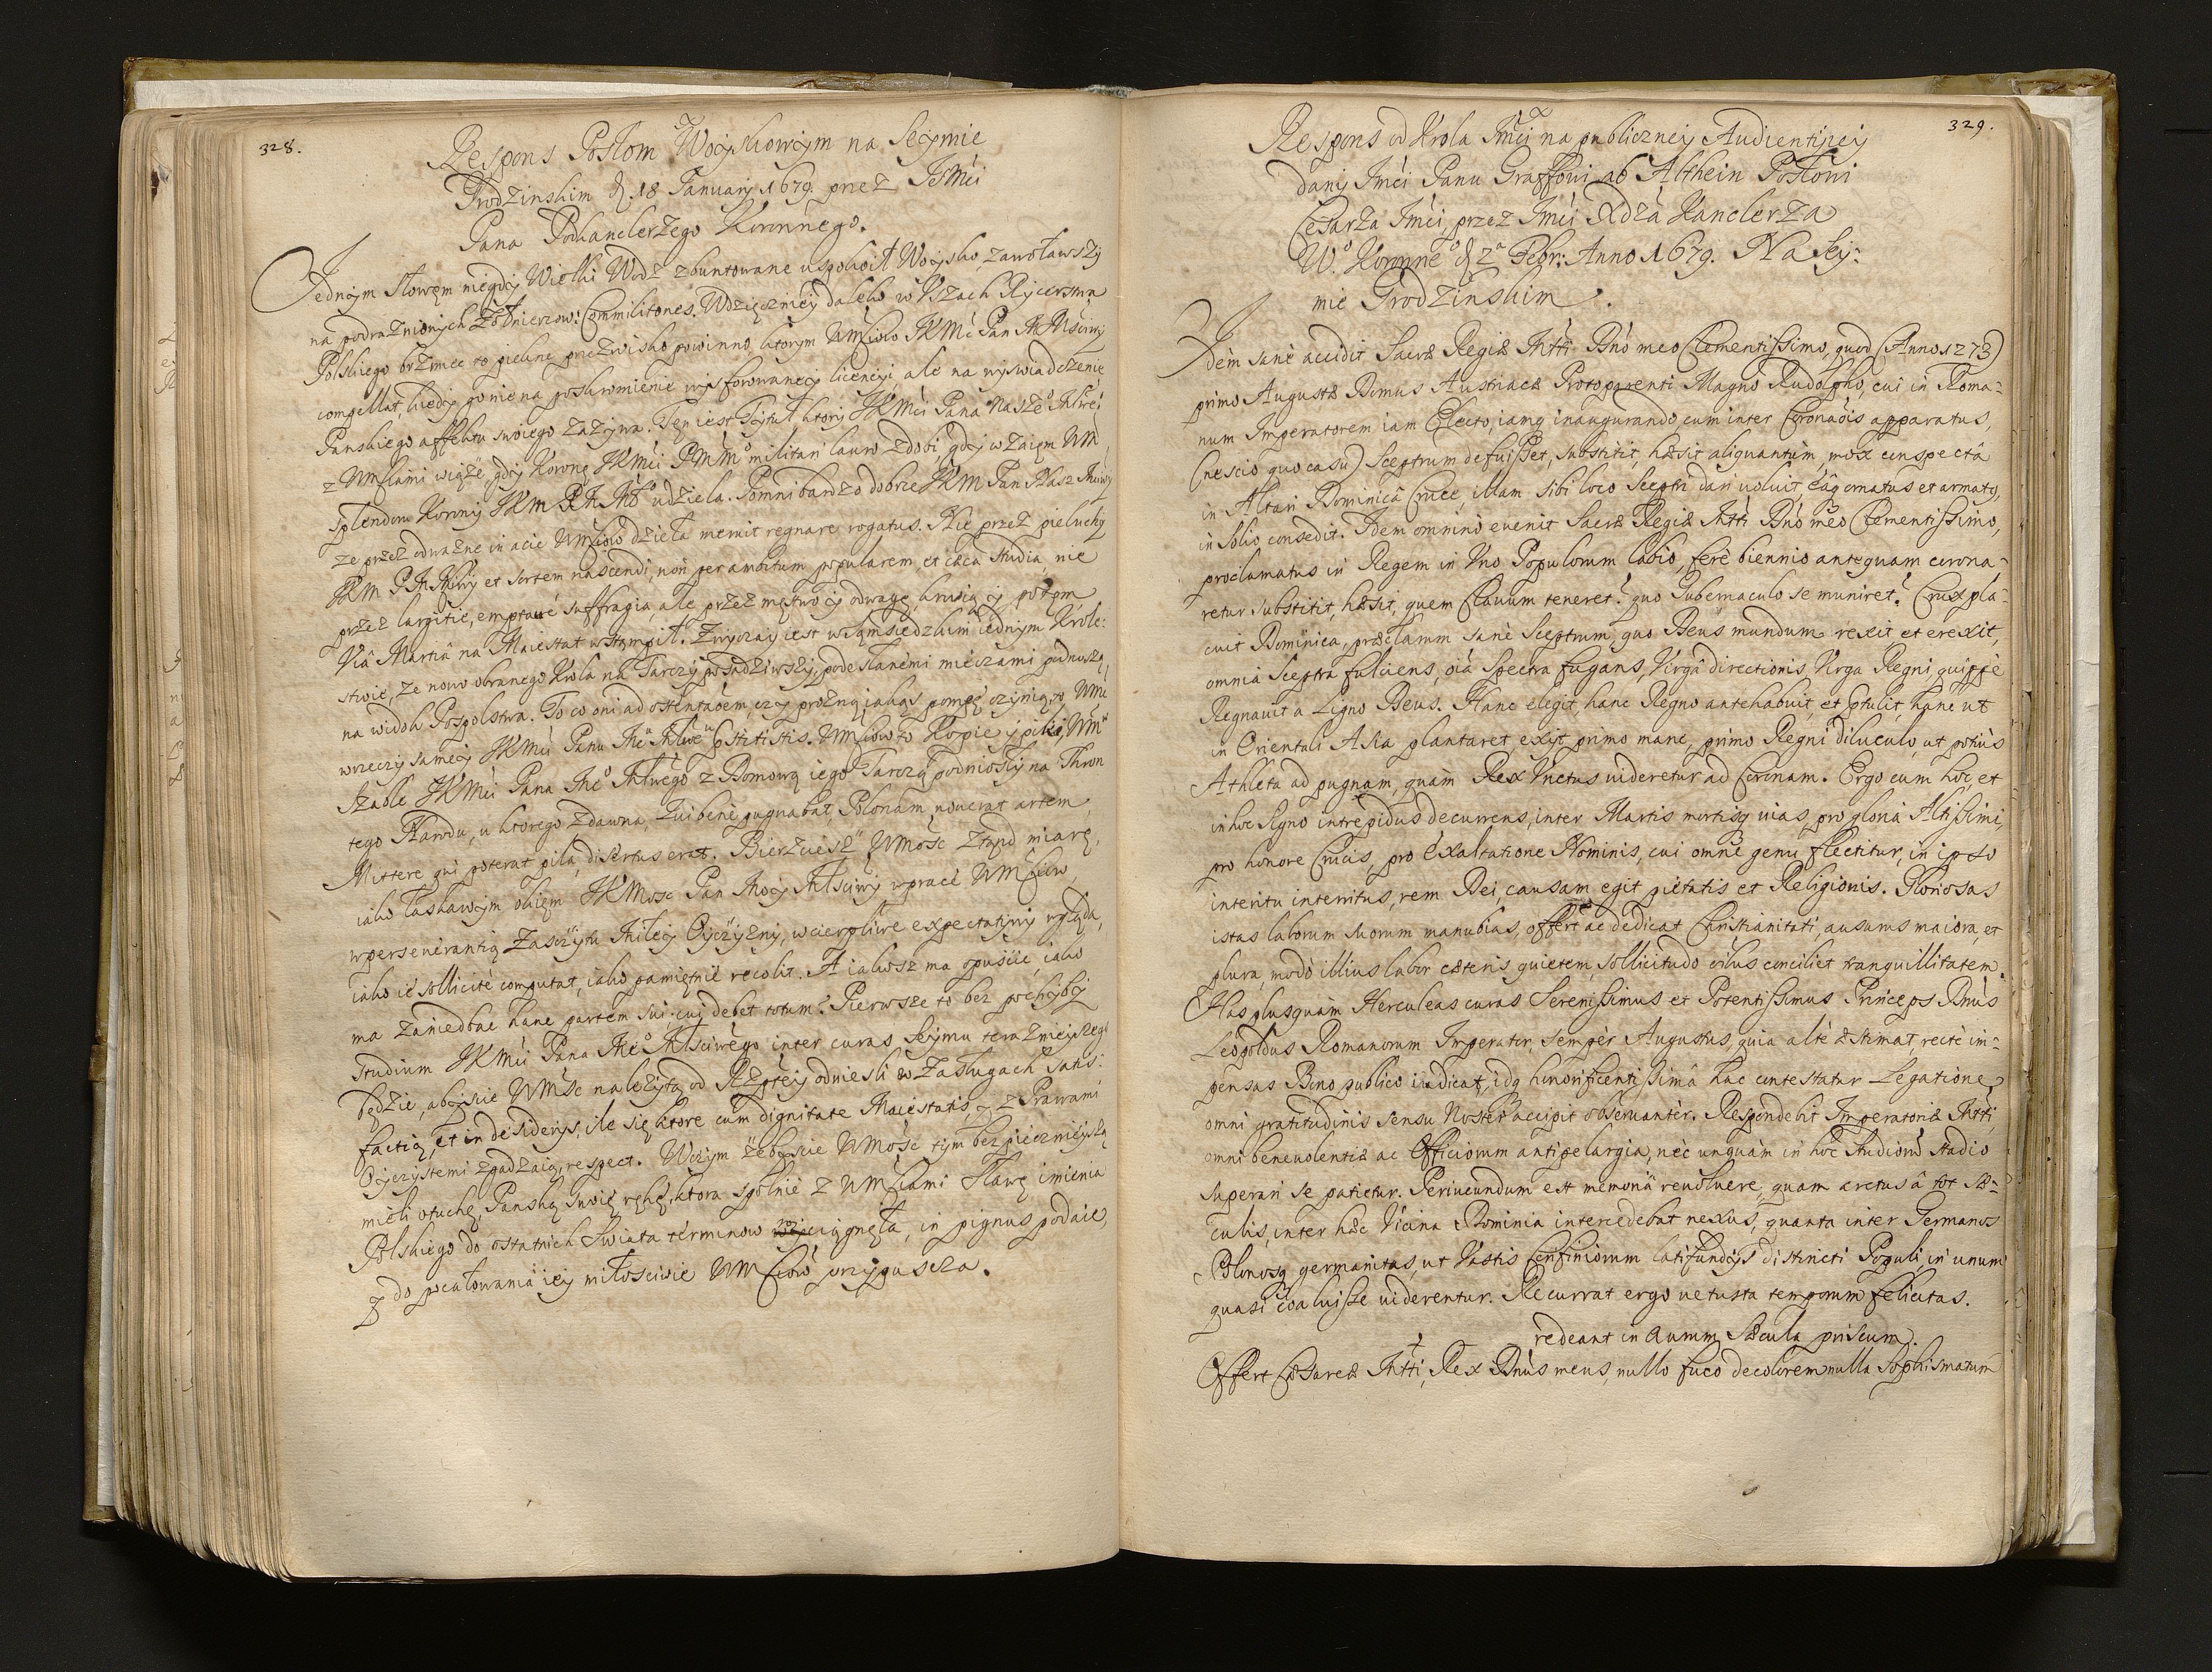 328.
Respons Posłom Woyskowym na Seymie
Grodzinskim d. 18 Januarij 1679. przez JeMći
Pana Podkanclerzego Koronnego.
Jednym słowem niegdy Wielki Wodz zbuntowane uspokoił Woysko, zawoławszy
na podraznionych Żołnierzow: Commilitones. Wdzięczniey daleko w Uszach Rycerstwa
Polskiego brzmiec to piękne przezwisko powinno, ktorym UMściow JKMć Pan N Mściwy
compellat, kiedy go nie na poskromienie wyforowaney licencyi, ale na wyswiadczenie
Panskiego affektu swoiego zazywa. Ten iest Tytuł, ktory JKMći Pana Nasze Młwe
z UMściami wiąże, gdy Koronę JKMći PMM militari lauro zdobi, gdy wzaiem UM
Splendoru Korony JKM P.N.Mo udziela. Pomni bardzo dobrze JKM Pan Nasz Miły
ze przez odwazne in acie UMściow dzieła meruit regnare rogatus. Nie przez pieluchy
JKM P.N.Miły et sortem nascendi, non per ambitum popularem, et caeca studia, nie
przez largitie, emptave suffragia, ale przez męstwo y odwagę, krwią y potem
Viâ Martiâ na Maiestat wstąpił. Zwyczay iest w sąmsiedzkim iednym Krole:
stwie, ze nowo obranego Krola na Tarczy posadziwszy, podesłanemi mieczami podnoszą
na widok Pospolstwa. To co oni ad ostentaoem, czy prozną iakąs pompę czynią, to UMć
w rzeczy samey JKMći Panu Me Młwe pstitistis. UMściow to Kopie y piki, UM
Szable JKMći Pana Me Młwego z Domową iego Tarczą podniosły na Thron
tego Narodu, u ktorego zdawna, Qui bene pugnabat, Polonam noverat artem,
Mittere qui poterat pila, disertus erat. Bierzciesz UMość ztąd miarę,
iako łaskawym okiem JKMosc Pan Moy Młsciwy w pracę UMściow,
w perseverantią Zasczytu Miłey Oyczyzny, w cierpliwe expectatywy wgląda,
iako ie sollicitè computat, iako pamiętnie recolit. A iakosz ma opuścić, iako
ma zaniedbac hanc partem sui, cui debet totum? Pierwsze to bez pochyby
studium JKMći Pana Me Młsciwego inter curas Seymu teraznieyszego
będzie, abyscie UMść należytą od Rzptey odniesli w Zasługach satis:
factią, et in desiderijs, ile się ktore cum dignitate Maiestatis, y z Prawami
Oyczystemi zgadzaią, respect. W czym żebyscie UMość tym bezpiecznieyszą
mieli otuchę, Panską swoię rękę, ktora spolnie z UMściami sławę imienia
Polskiego do ostatnich Swiata terminow rozciągnęła, in pignus podaie,
y do pocałowania iey miłosciwie UMściow przypuscza.
329.
Respons od Krola Jmći na publiczney Audientijey
dany Jmći Panu Graffowi ab Althein Posłowi
Cesarza Jmći, przez Jmći Xdza Kanclerza
W. Koronne d 2 Febr: Anno 1679. Na Sey:
mie Grodzinskim.
Idem sanè accidit Sacrae Regiae Mtti Dno meo Clementissimo, quod (Anno 1273)
primo Augustae Domus Austriacae Protoparenti Magno Rudolpho, cui in Roma=
num Imperatorem iam Electo, iamq inaugurando, cum inter Coronaois apparatus,
(nescio quo casu) Sceptrum defuisset, substitit, haesit aliquantum, mox conspectâ
in Altari Dominicâ Cruce, illam sibi loco Sceptri dari voluit, eâq ornatus et armatq,
in Solio consedit. Idem omninò evenit Sacrae Regiae Mtti Dno meo Clementissimo,
proclamatus in Regem in Uno Populorum labio, ferè biennio antequam corona=
retur substitit, haesit, quem Clavum teneret? quo Gubernaculo se muniret? Crux pla=
cuit Dominica, praeclarum sanè Sceptrum, quo Deus mundum rexit et erexit,
omnia Sceptra fulciens, oia Spectra fugans, Virgâ directionis, Virga Regni quippè
Regnavit a Ligno Deus. Hanc elegit, hanc Regno antehabuit, et ptulit, hanc ut
in Orientali Asia plantaret, exijt primo mane, primo Regni diluculo, ut potiùs
Athleta ad pugnam, quàm Rex Unctus videretur ad Coronam. Ergo cum hoc, et
in hoc Signo intrepidus decurrens, inter Martis mortisq vias, pro gloria Altissimi,
pro honore Crucis, pro exaltatione Nominis, cui omne genu flectitur, in ipso
interitu interritus, rem Dei, causam egit pietatis et Religionis. Gloriosas
istas laborum suorum manubias, offert ac dedicat Christianitati, ausurus maiora, et
plura, modò illius labor caeteris quietem, sollicitudo oibus conciliet tranquillitatem.
Has plusquàm Herculeas curas Serenissimus et Potentissimus Princeps Dnus
Leopoldus Romanorum Imperator, semper Augustus, quia altè aestimat, rectè im=
pensas Bono publico iudicat, idq honorificentissimâ hac contestatur Legatione,
omni gratitudinis sensu Noster accipit observantèr. Respondebit Imperatoriae Mtti,
omni benevolentiae ac Officiorum antipelargia, nec unquàm in hoc studiorû stadio
superari se patietur. Periucundum est memoriâ revolvere, quam arctus â tot sae=
culis, inter haec Vicina Dominia intercedebat nexus, quanta inter Germanos
Polonosq germanitas, ut Vastis Confiniorum latifundijs districti Populi, in unum
quasi coaluisse viderentur. Recurrat ergo vetusta temporum felicitas.
redeant in aurum Saecula priscum.
Offert Caesareae Mtti, Rex Dnus meus, nullo fuco decolorem, nulla sophismatum